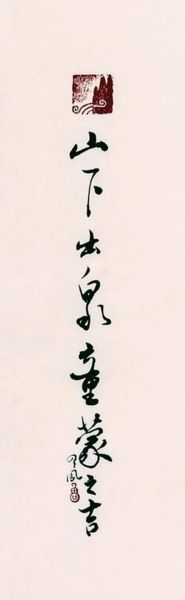 山下出泉童蒙之吉